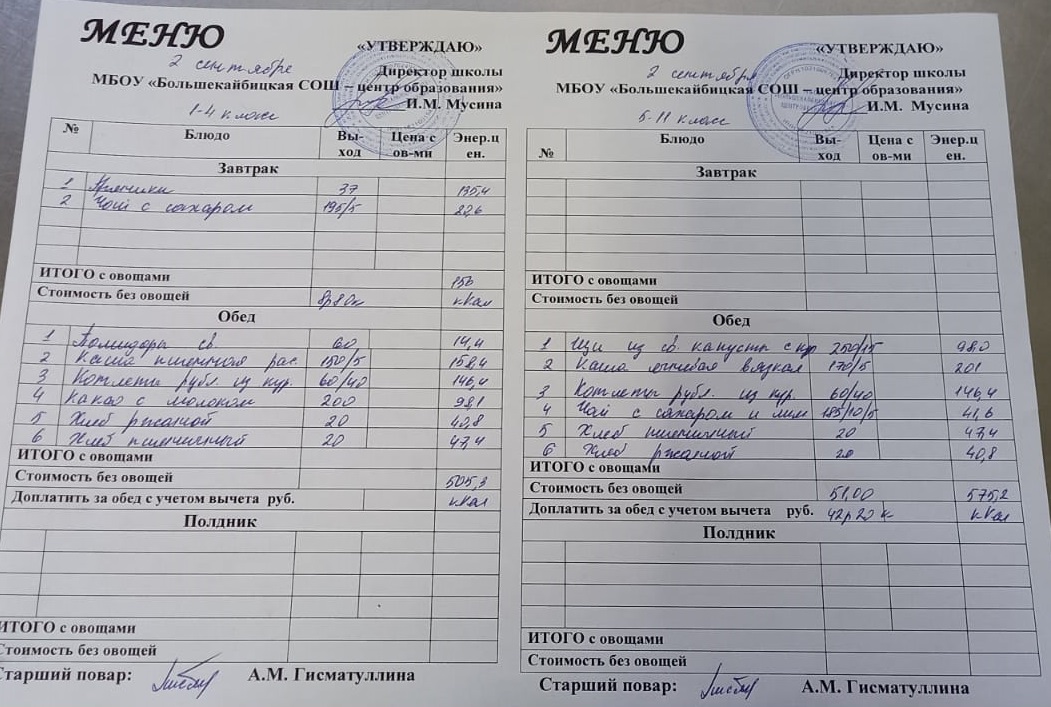 МЕНЮ
2 сентября
«УТВЕРЖДАЮ»
Директор школы
МБОУ «Большекайбицкая СОШ – центр образования»
И.М. Мусина
1-4 класс
№ Блюдо Вы-ход Цена с ов-ми Энер.ц ен.
Завтрак
1 Пряники 37 135,4
2 Чай с сахаром 195/5 22,6
ИТОГО с овощами 156
Стоимость без овощей 8р80к кКал
Обед
1 Помидоры св. 60 14,4
2 Каша пшеничная рас. 150/5 158,4
3 Котлеты рубл. из кур. 60/40 146,4
4 Какао с молоком 200 98,1
5 Хлеб ржаной 20 40,8
6 Хлеб пшеничный 20 47,4
ИТОГО с овощами
Стоимость без овощей 505,3
Доплатить за обед с учетом вычета руб. кКал
Полдник
ИТОГО с овощами
Стоимость без овощей
Старший повар: А.М. Гисматуллина
МЕНЮ
2 сентября
«УТВЕРЖДАЮ»
Директор школы
МБОУ «Большекайбицкая СОШ – центр образования»
И.М. Мусина
5-11 класс
№ Блюдо Вы-ход Цена с ов-ми Энер.ц ен.
Завтрак
ИТОГО с овощами
Стоимость без овощей
Обед
1 Щи из св. капусты с кур 250/15 98,0
2 Каша вязкая 170/5 201
3 Котлеты рубл. из кур. 60/40 146,4
4 Чай с сахаром и лим 185/10/5 41,6
5 Хлеб пшеничный 20 47,4
6 Хлеб ржаной 20 40,8
ИТОГО с овощами
Стоимость без овощей 51,00 575,2
Доплатить за обед с учетом вычета руб. 42р20к кКал
Полдник
ИТОГО с овощами
Стоимость без овощей
Старший повар: А.М. Гисматуллина